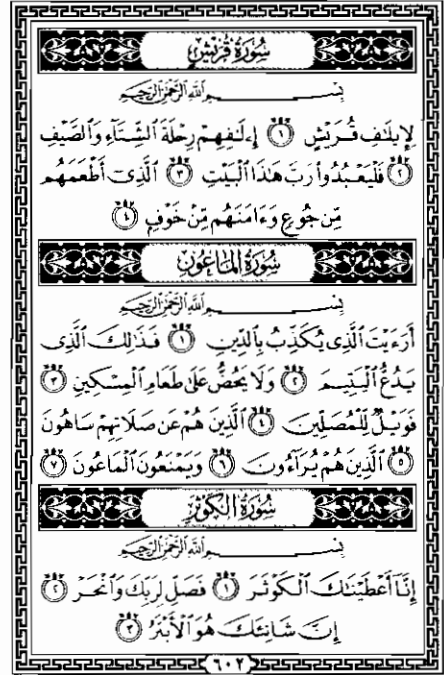 سُورَةُ قُرَيْشٍ
بِسْمِ ٱللَّهِ ٱلرَّحْمَٰنِ ٱلرَّحِيمِ
لِإِيلَٰفِ قُرَيْشٍ ١ إِۦلَٰفِهِمْ رِحْلَةَ ٱلشِّتَآءِ وَٱلصَّيْفِ
٢ فَلْيَعْبُدُوا۟ رَبَّ هَٰذَا ٱلْبَيْتِ ٣ ٱلَّذِىٓ أَطْعَمَهُم
مِّن جُوعٍ وَءَامَنَهُم مِّنْ خَوْفٍۭ ٤
سُورَةُ المَاعُونِ
بِسْمِ ٱللَّهِ ٱلرَّحْمَٰنِ ٱلرَّحِيمِ
أَرَءَيْتَ ٱلَّذِى يُكَذِّبُ بِٱلدِّينِ ١ فَذَٰلِكَ ٱلَّذِى
يَدُعُّ ٱلْيَتِيمَ ٢ وَلَا يَحُضُّ عَلَىٰ طَعَامِ ٱلْمِسْكِينِ ٣
فَوَيْلٌ لِّلْمُصَلِّينَ ٤ ٱلَّذِينَ هُمْ عَن صَلَاتِهِمْ سَاهُونَ
٥ ٱلَّذِينَ هُمْ يُرَآءُونَ ٦ وَيَمْنَعُونَ ٱلْمَاعُونَ ٧
سُورَةُ الكَوْثَرِ
بِسْمِ ٱللَّهِ ٱلرَّحْمَٰنِ ٱلرَّحِيمِ
إِنَّآ أَعْطَيْنَٰكَ ٱلْكَوْثَرَ ١ فَصَلِّ لِرَبِّكَ وَٱنْحَرْ ٢
إِنَّ شَانِئَكَ هُوَ ٱلْأَبْتَرُ ٣
٦٠٢